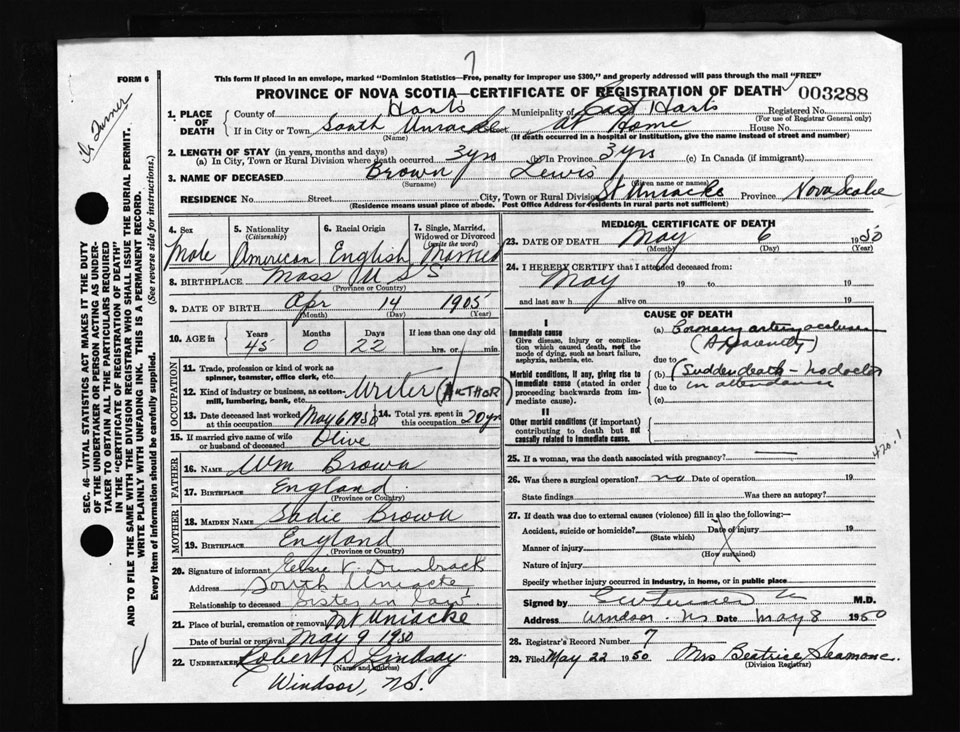 7
FORM 6
This form if placed in an envelope, marked "Dominion Statistics—Free, penalty for improper use $300," and properly addressed will pass through the mail "FREE"
PROVINCE OF NOVA SCOTIA—CERTIFICATE OF REGISTRATION OF DEATH 003288
SEC. 46—VITAL STATISTICS ACT MAKES IT THE DUTY
OF THE UNDERTAKER OR PERSON ACTING AS UNDER-
TAKER TO OBTAIN ALL THE PARTICULARS REQUIRED
IN THE "CERTIFICATE OF REGISTRATION OF DEATH"
AND TO FILE THE SAME WITH THE DIVISION REGISTRAR WHO SHALL ISSUE THE BURIAL PERMIT.
WRITE PLAINLY WITH UNFADING INK. THIS IS A PERMANENT RECORD.
Every item of information should be carefully supplied. (See reverse side for instructions.)
1. PLACE OF DEATH
County of Hants Municipality of East Hants Registered No.
(For use of Registrar General only)
If in City or Town South Uniacke At Home House No.
(Name) (If death occurred in a hospital or institution, give the name instead of street and number)
2. LENGTH OF STAY (in years, months and days)
(a) In City, Town or Rural Division where death occurred 3 yrs In Province 3 yrs (c) In Canada (if immigrant)
3. NAME OF DECEASED Brown Lewis
(Surname) (Given name or names)
RESIDENCE No. Street City, Town or Rural Division St Uniacke Province Nova Scotia
(Residence means usual place of abode. Post Office Address for residents in rural parts not sufficient)
4. Sex
Male
5. Nationality
(Citizenship)
American
6. Racial Origin
English
7. Single, Married,
Widowed or Divorced
(write the word)
Married
8. BIRTHPLACE Mass U S
(Province or Country)
9. DATE OF BIRTH Apr 14 1905
(Month) (Day) (Year)
10. AGE in Years Months Days If less than one day old
45 0 22 hrs. or min.
OCCUPATION
11. Trade, profession or kind of work as
spinner, teamster, office clerk, etc.
12. Kind of industry or business, as cotton-
mill, lumbering, bank, etc.
Writer (AUTHOR)
13. Date deceased last worked
at this occupation May 6 1950
14. Total yrs. spent in
this occupation 20 yrs
15. If married give name of wife
or husband of deceased Olive
FATHER
16. NAME Wm Brown
17. BIRTHPLACE England
(Province or Country)
MOTHER
18. MAIDEN NAME Sadie Brown
19. BIRTHPLACE England
(Province or Country)
20. Signature of informant Elsie V. Dunbrack
Address South Uniacke
Relationship to deceased Sister in law.
21. Place of burial, cremation or removal Mt Uniacke
Date of burial or removal May 9 1950
22. UNDERTAKER Robert D Lindsay
(Name and address)
Windsor, N.S.
MEDICAL CERTIFICATE OF DEATH
23. DATE OF DEATH May 6 1950
(Month) (Day) (Year)
24. I HEREBY CERTIFY that I attended deceased from:
May 19 to 19
and last saw h alive on 19
CAUSE OF DEATH
I
Immediate cause
Give disease, injury or complica-
tion which caused death, not the
mode of dying, such as heart failure,
asphyxia, asthenia, etc.
(a) Coronary artery occlusion
(Apparently)
due to
Morbid conditions, if any, giving rise to
immediate cause (stated in order
proceeding backwards from im-
mediate cause).
(b) (Sudden death - no doctor
due to in attendance
(c)
II
Other morbid conditions (if important)
contributing to death but not
causally related to immediate cause.
420.1
25. If a woman, was the death associated with pregnancy? —
26. Was there a surgical operation? no Date of operation 19
State findings Was there an autopsy?
27. If death was due to external causes (violence) fill in also the following:—
Accident, suicide or homicide? Date of injury 19
(State which)
Manner of injury
(How sustained)
Nature of injury
Specify whether injury occurred in industry, in home, or in public place
Signed by M.D.
Address Windsor. NS Date May 8 1950
28. Registrar's Record Number 7
29. Filed May 22 1950 Mrs Beatrice Seamone.
(Division Registrar)